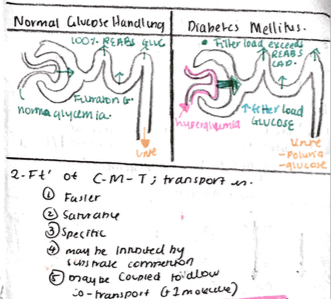 Normal Glucose Handling
100% REABS GLUC
Filtration G
normoglycemia.
Urine
Diabetics Mellitus.
• Filter load exceeds
REABS
CAP.
↑ filter load
GLUCOSE
hyperglycemia
Urine
- Poluria
- glucose
2. Ft' of C-M-T; transport is.
① Faster
② Saturable
③ Specific
④ may be Inhibited by
substrate competion
⑤ maybe Coupled to allow
co-transport (>1 molecule)